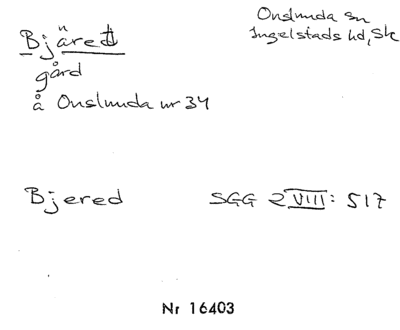 Bjäred
Onslunda sn
Ingelstads hd, Sk
gård
å Onslunda nr 34
Bjered
SGG 2 VIII: 517
Nr 16403